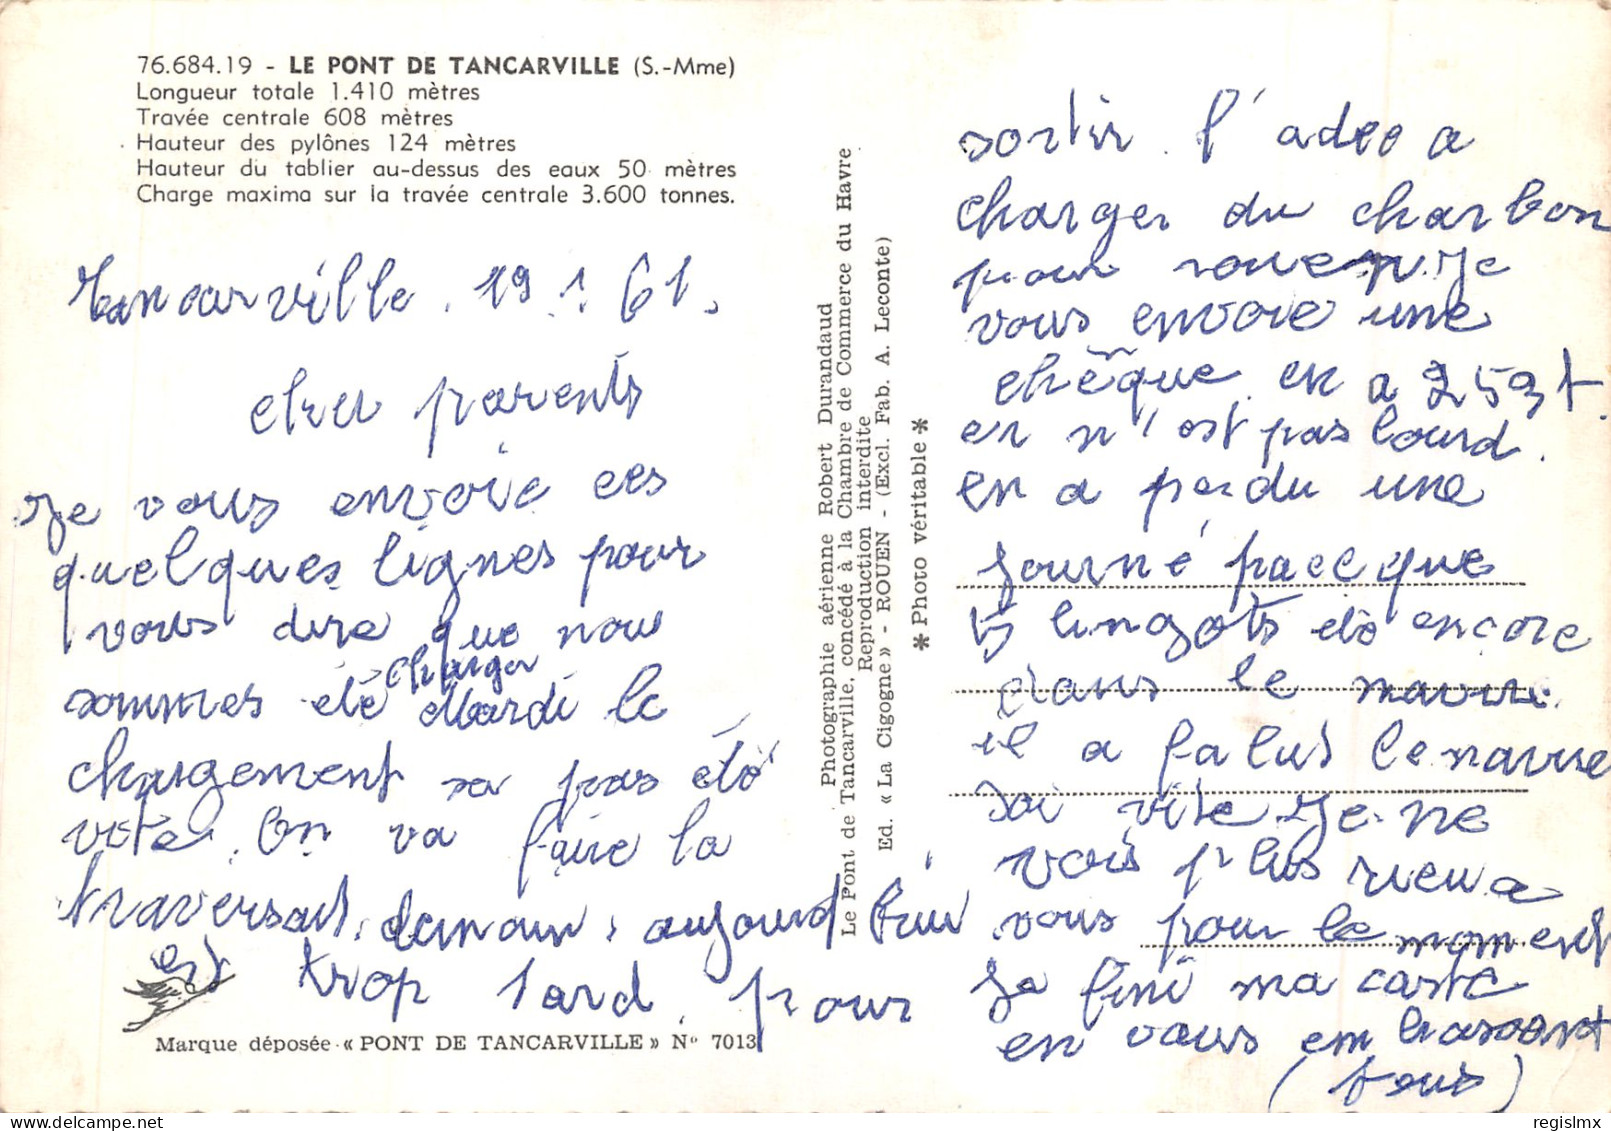 76.684.19 - LE PONT DE TANCARVILLE (S.-Mme)
Longueur totale 1.410 mètres
Travée centrale 608 mètres
Hauteur des pylônes 124 mètres
Hauteur du tablier au-dessus des eaux 50 mètres
Charge maxima sur la travée centrale 3.600 tonnes.
Tancarville. 19.1.61.
cher parents
Je vous envoie ces
quelques lignes pour
vous dire que nous
sommes été charger Mardi le
chargement sa pas été
vite. On va faire la
traversait demain, aujourd'hui
est trop tard. pour
Marque déposée « PONT DE TANCARVILLE » N° 7013
Photographie aérienne Robert Durandaud
Le Pont de Tancarville, concédé à la Chambre de Commerce du Havre
Reproduction interdite
Ed. « La Cigogne » - ROUEN - (Excl. Fab. A. Leconte)
* Photo véritable *
sortir. l'adeo a
charger du charbon
pour rouen. Je
vous envoie une
chêque en a 253t.
en n'est pas lourd.
en a perdu une
journé pace que
5 lingots été encore
dans le navire.
il a falus le navire
soi vite. Je ne
vois plus rien a
vous pour le moment
Je fini ma carte
en vous embrassant
(fons)
regislmx